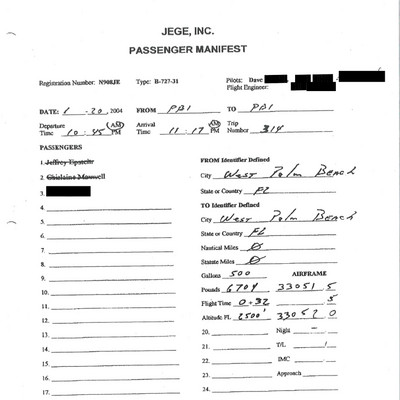 JEGE, INC.
PASSENGER MANIFEST
Registration Number: N908JE Type: B-727-31 Pilots: Dave
Flight Engineer:
DATE: 1 - 20, 2004 FROM PBI TO PBI
Departure Time 10:45 AM PM Arrival Time 11:17 AM PM Trip Number 314
PASSENGERS
1. Jeffrey Epstein
2. Ghislaine Maxwell
3.
4.
5.
6.
7.
8.
9.
10.
11.
12.
13.
14.
15.
16.
17.
FROM Identifier Defined
City West Palm Beach
State or Country FL
TO Identifier Defined
City West Palm Beach
State or Country FL
Nautical Miles Ø
Statute Miles Ø
Gallons 500 AIRFRAME
Pounds 6704 33051 5
Flight Time 0+32 5
Altitude FL 2500' 33052 0
20. Night -
21. T/L /
22. IMC -
23. Approach -
24.